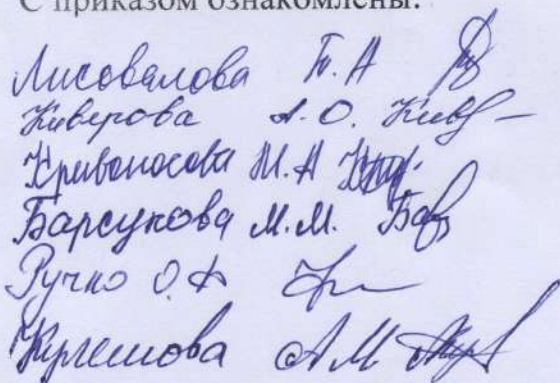 С приказом ознакомлены:
Лисовалова Т. А
Киверова А. О. Кив
Кривоносова М. А
Барсукова М. М. Бар
Ручко О. А
Кулешова А. М